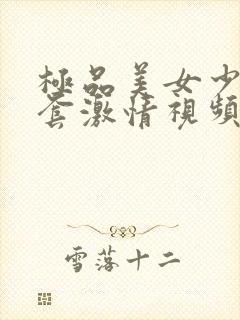 極品美女少
套激情視頻
雪落十二